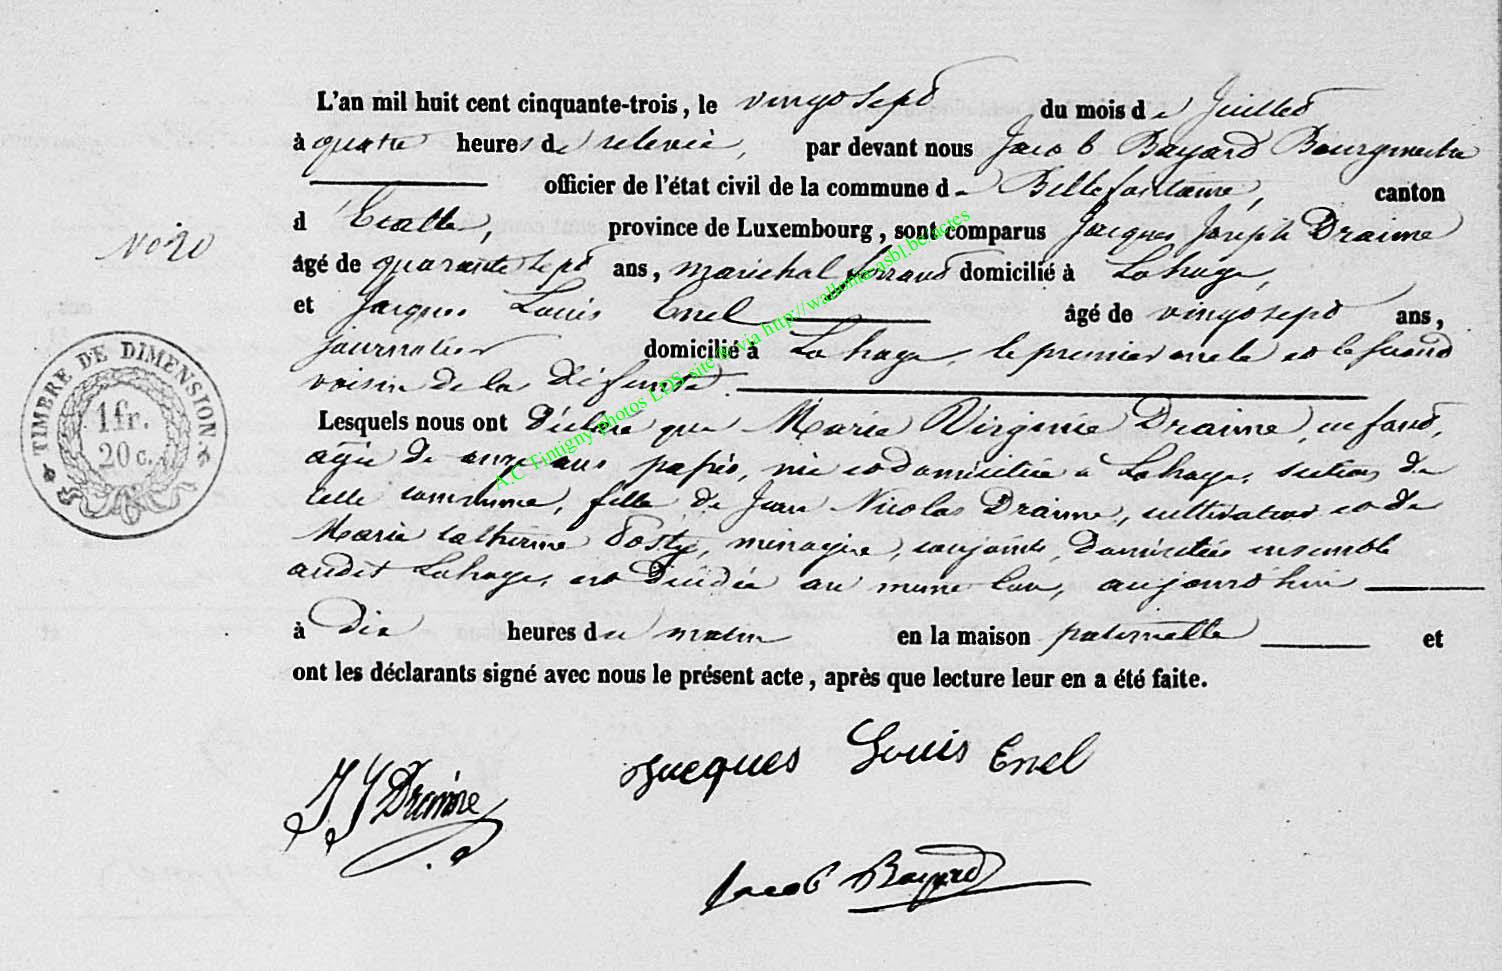 L'an mil huit cent cinquante-trois, le vingt sept du mois de Juillet
à quatre heures de relevée, par devant nous Jacob Bayard Bourgmestre
officier de l'état civil de la commune de Bellefontaine, canton
d'Etalle, province de Luxembourg, sont comparus Jacques Joseph Draime
âgé de quarante sept ans, maréchal ferrant domicilié à Lahage,
et Jacques Louis Enel âgé de vingt sept ans,
N° 20
journalier domicilié à Lahage, le premier oncle et le second
voisin de la défunte.
TIMBRE DE DIMENSION
1 fr.
20 c.
Lesquels nous ont déclaré que Marie Virginie Draime, enfant,
agée de onze ans passés, née et domiciliée à Lahage, section de
cette commune, fille de Jean Nicolas Draime, cultivateur et de
Marie Catherine Posty, ménagère, conjoints, domiciliés ensemble
audit Lahage, est décédée au même lieu, aujourd'hui
à dix heures du matin en la maison paternelle et
ont les déclarants signé avec nous le présent acte, après que lecture leur en a été faite.
A.C Tintigny photos LDS site web via http://wallonia-asbl.be/actes
Jacques Louis Enel
J J Draime
Jacob Bayard